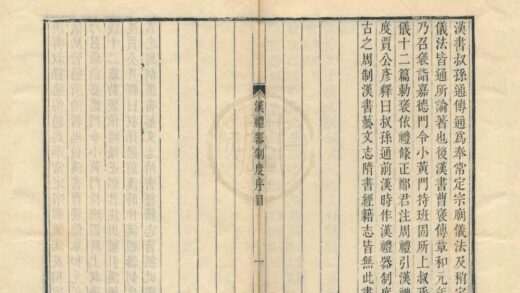 漢書叔孫通傳通爲奉常定宗廟儀法及稍定
儀法皆通所論著也後漢書曹褒傳章和元年
乃召褒詣嘉德門令小黃門持班固所上叔孫
儀十二篇勅褒依禮條正鄭君注周禮引漢
度賈公彥釋曰叔孫通前漢時作漢禮器制度
古之周制漢書藝文志隋書經籍志皆無此書
漢禮器制度序目
一